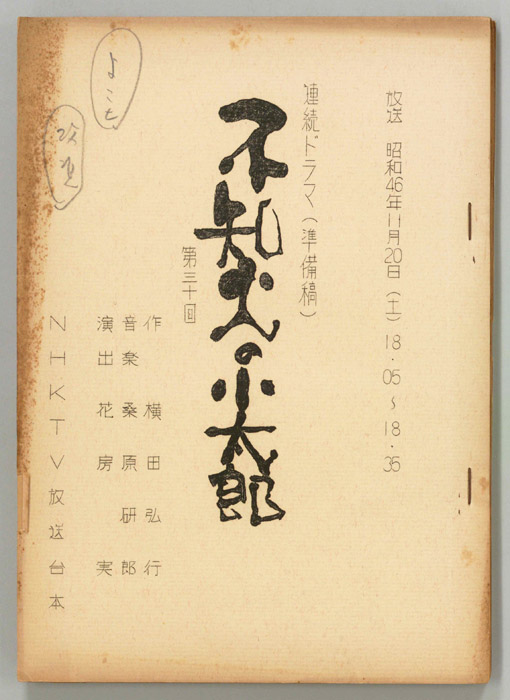 放送 昭和46年11月20日(土)18・05~18・35
連続ドラマ(準備稿)
不知火の小太郎
第三十回
作 横田弘行
音楽 桑原研郎
演出 花房実
NHKTV放送台本